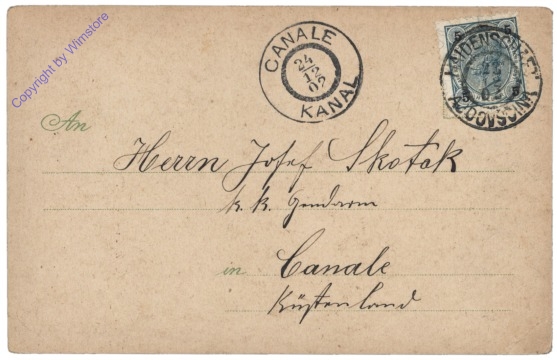 Copyright by Wimstore
CANALE
24
12
02
KANAL
5 5
HAIDENSCHAFT
AJDOVŠČINA
02
An
Herrn Josef Skoták
k. k. Gendarm
in Canale
Küstenland